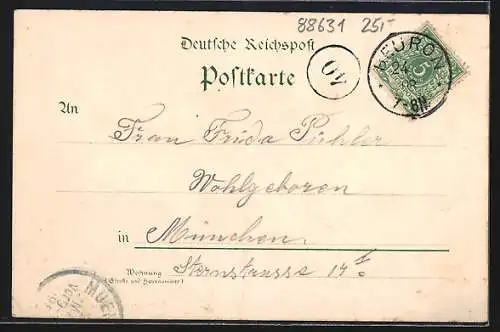 88631 25,-
Deutsche Reichspost
Postkarte
AO
BEURON
24
7-8N.
5
An
Frau Frida Pühler
Wohlgeboren
in München.
Sternstrasse 14
Wohnung
(Straße und Hausnummer)
MUE